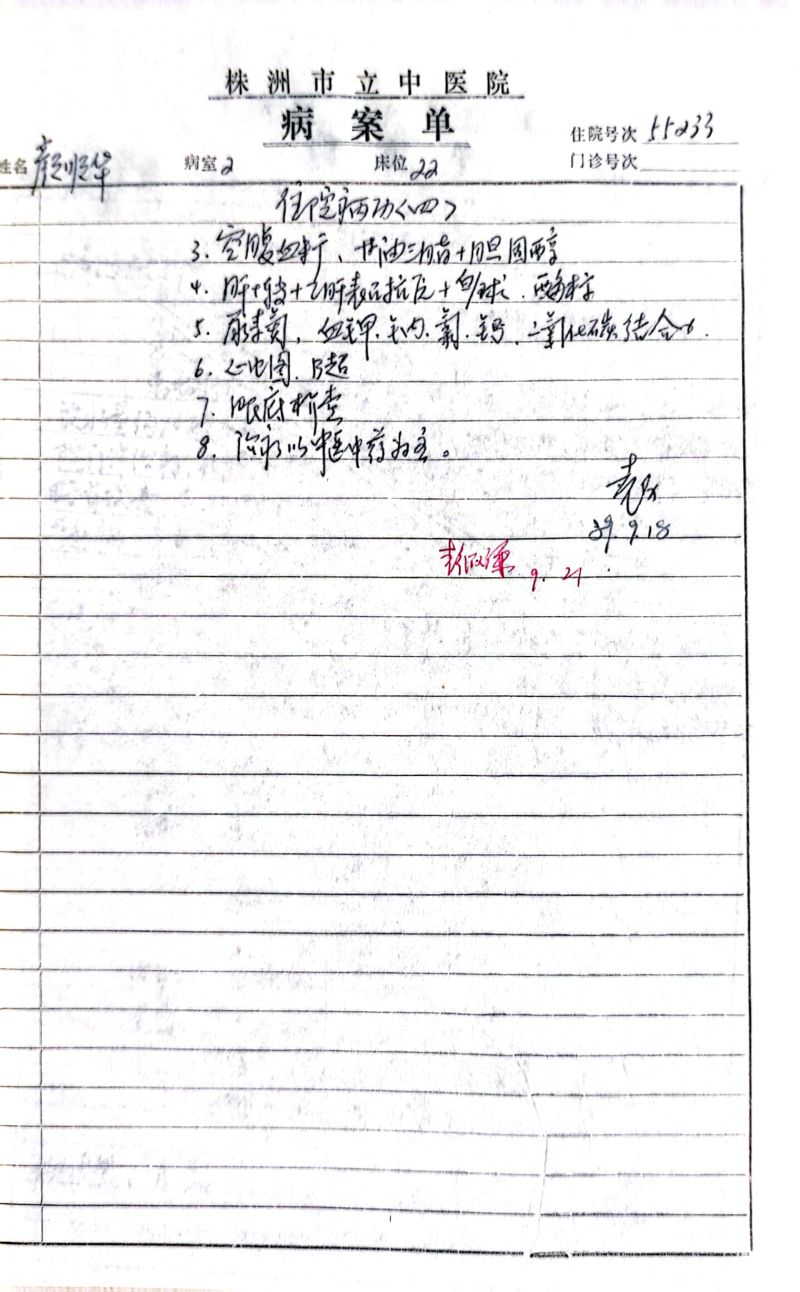 株洲市立中医院
病案单
住院号次 55233
姓名 颜顺华 病室 2 床位 22 门诊号次
住院病历〈四〉
3. 空腹血糖、甘油三脂+胆固醇
4. 肝功+乙肝表面抗原+白球
5. 尿素氮，血钾.钠.氯.钙.二氧化碳结合力.
6. 心电图.B超
7. 眼底检查
8. 治疗以中医中药为主。
89.9.18
9.21